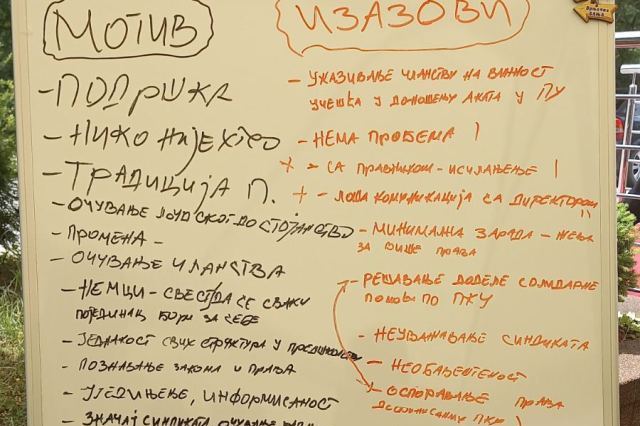 МОТИВ
- ПОДРШКА
- НИКО НИЈЕ ХТЕО
- ТРАДИЦИЈА П.
- ОЧУВАЊЕ ЉУДСКОГ ДОСТОЈАНСТВО
- ПРОМЕНА -
- ОЧУВАЊЕ ЧЛАНСТВА
- НЕМЦИ - СВЕСТ ДА СЕ СВАКИ
ПОЈЕДИНАЦ БОРИ ЗА СЕБЕ
- ЈЕДНАКОСТ СВИХ СТРУКТУРА У
- ПОЗНАВАЊЕ ЗАКОНА И ПРАВА
- УЈЕДИЊЕЊЕ, ИНФОРМИСАНОСТ
- ЗНАЧАЈ СИНДИКАТА ОЧУВАЊЕ
ИЗАЗОВИ
- УКАЗИВАЊЕ ЧЛАНСТВУ НА ВАЖНОСТ
УЧЕШЋА У ДОНОШЕЊУ АКАТА У ПУ
- НЕМА ПРОБЕМА !
+ - СА ПРАВНИКОМ - !
+ - ЛОША КОМУНИКАЦИЈА СА ДИРЕКТОРОМ !!
- МИНИМАЛНА ЗАРАДА -
ЗА ВИШЕ ПРАВА
- РЕШАВАЊЕ ДОДЕЛЕ СОЛИДАРНЕ
ПОМОЋИ ПО ПКУ
- НЕУВАЖАВАЊЕ СИНДИКАТА
- НЕОБАВЕШТЕНОСТ
- ОСПОРАВАЊЕ ПРАВА